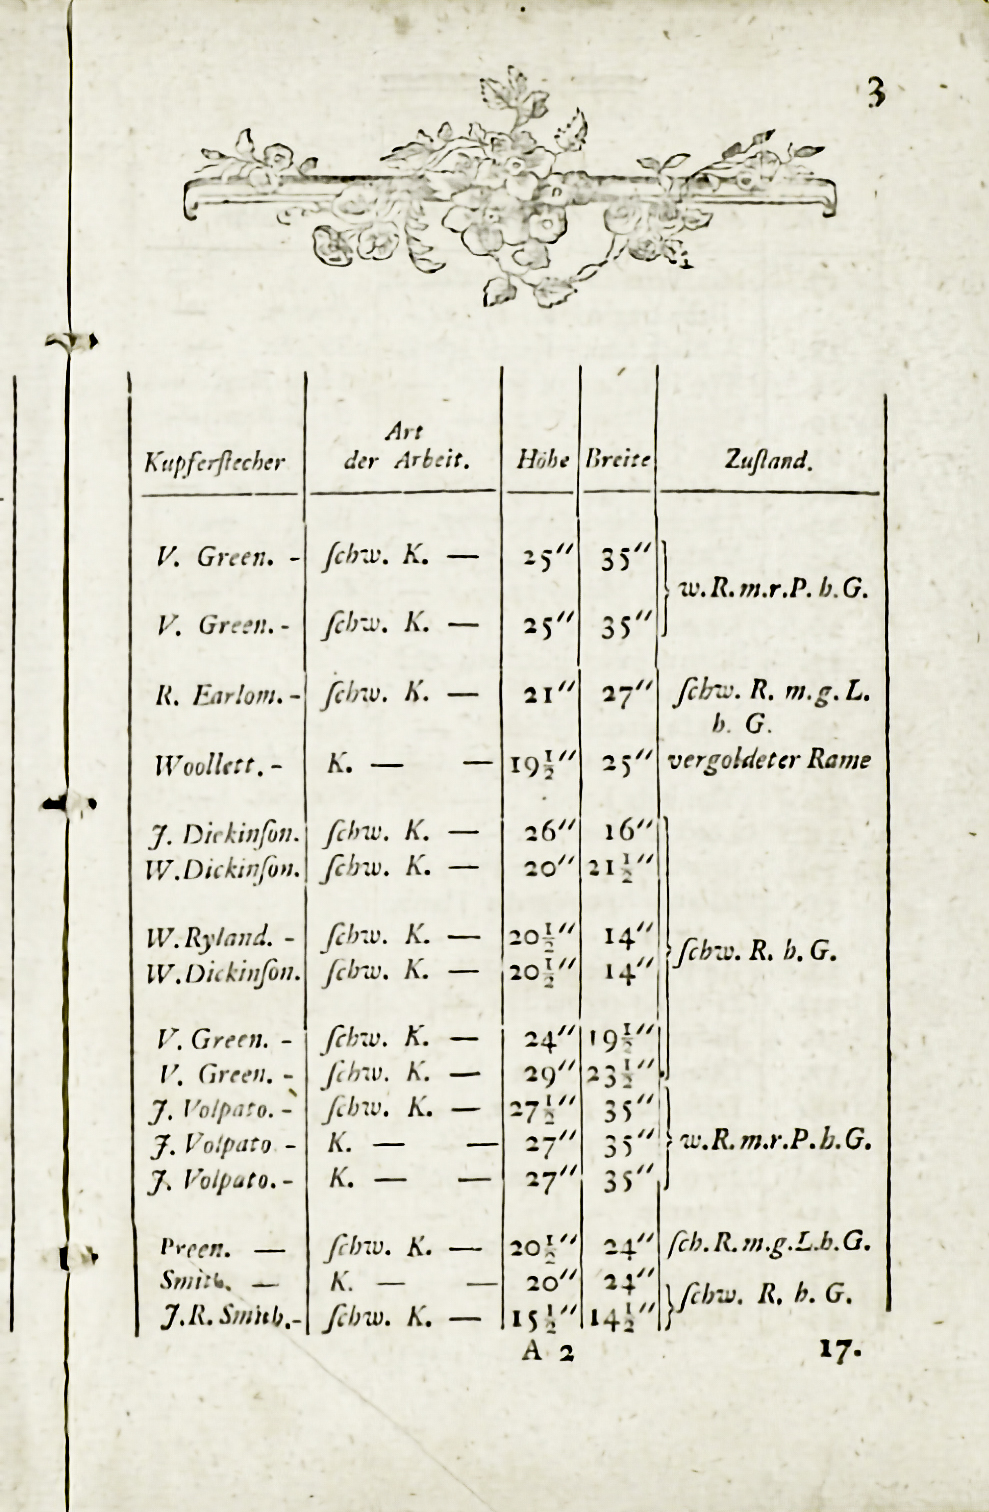 3
Art
Kupferſtecher der Arbeit. Höhe Breite Zuſtand.
V. Green. - ſchw. K. — 25″ 35″
w. R. m. r. P. h. G.
V. Green. - ſchw. K. — 25″ 35″
R. Earlom. - ſchw. K. — 21″ 27″ ſchw. R. m. g. L.
h. G.
Woollett. - K. — — 19½″ 25″ vergoldeter Rame
J. Dickinſon. ſchw. K. — 26″ 16″
W. Dickinſon. ſchw. K. — 20″ 21½″
W. Ryland. - ſchw. K. — 20½″ 14″
ſchw. R. h. G.
W. Dickinſon. ſchw. K. — 20½″ 14″
V. Green. - ſchw. K. — 24″ 19½″
V. Green. - ſchw. K. — 29″ 23½″
J. Volpato. - ſchw. K. — 27½″ 35″
J. Volpato - K. — — 27″ 35″ w. R. m. r. P. h. G.
J. Volpato. - K. — — 27″ 35″
Preen. — ſchw. K. — 20½″ 24″ ſch. R. m. g. L. h. G.
Smith. — K. — — 20″ 24″
ſchw. R. h. G.
J. R. Smith. - ſchw. K. — 15½″ 14½″
A 2 17.